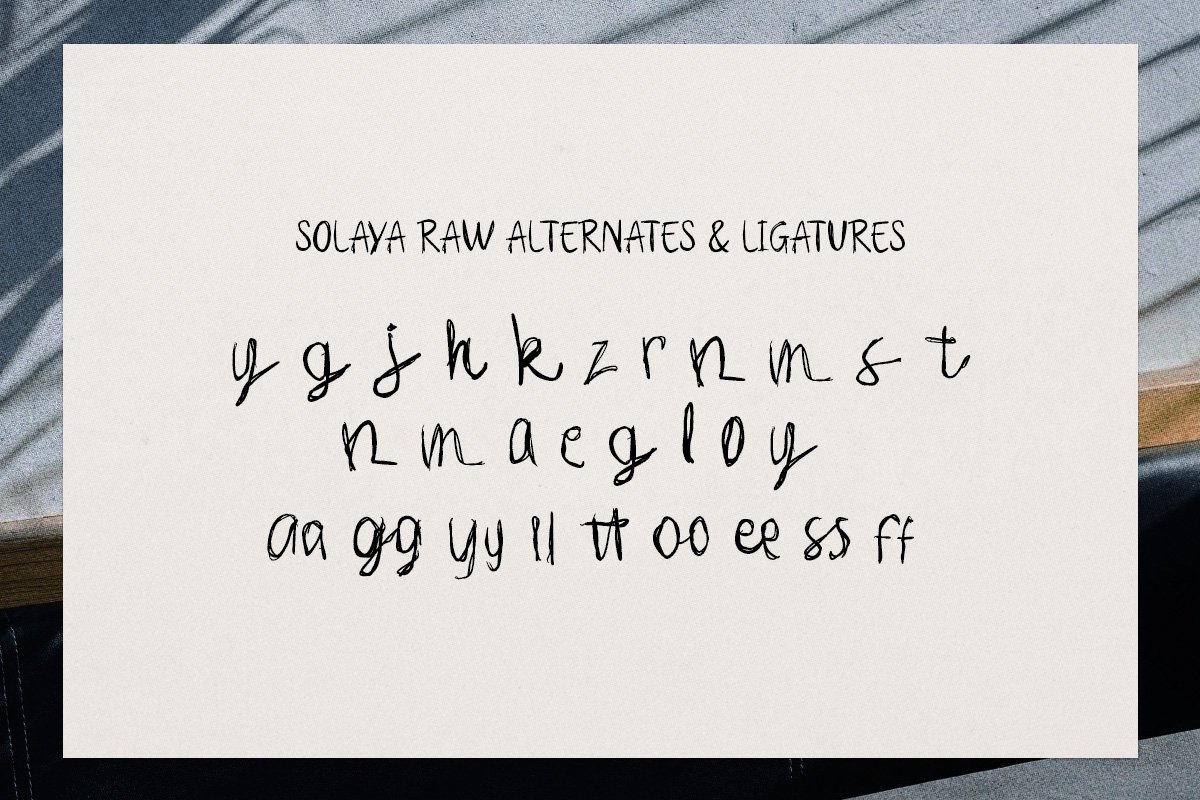 SOLAYA RAW ALTERNATES & LIGATURES
y g j h k z r n m s t
n m a e g l o y
aa gg yy ll tt oo ee ss ff